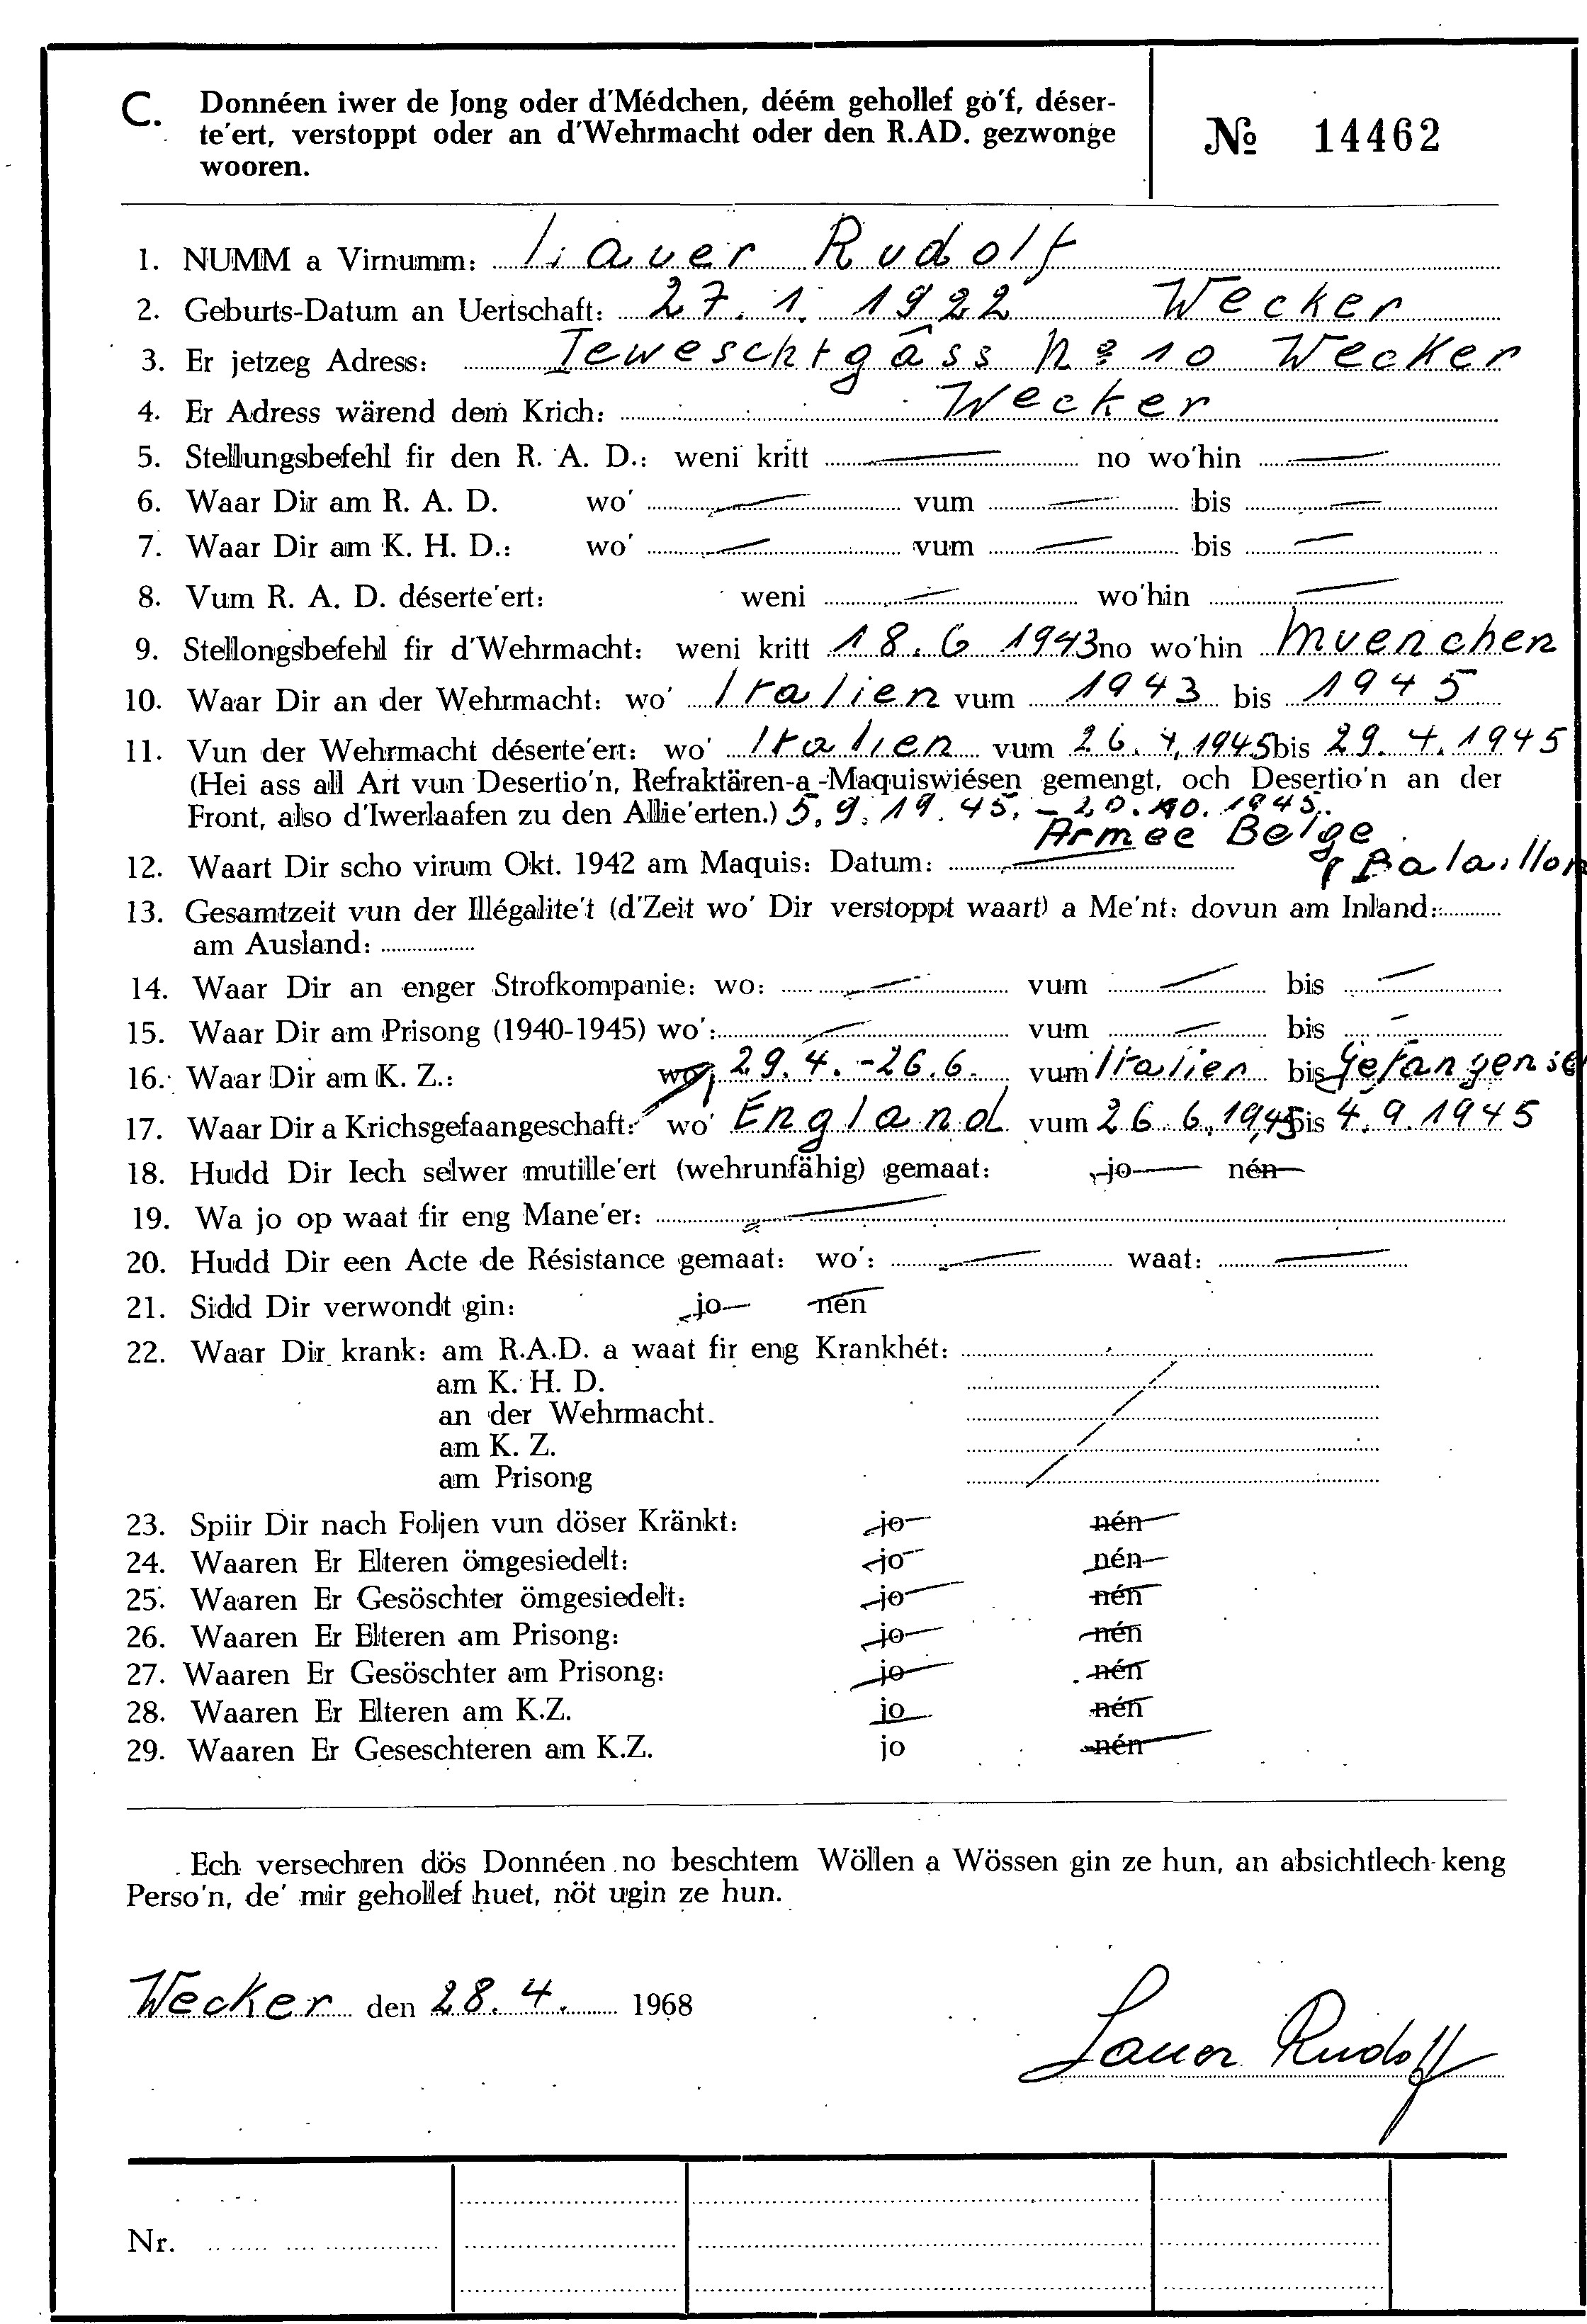 C. Donnéen iwer de Jong oder d'Médchen, déém gehollef go'f, déser-
te'ert, verstoppt oder an d'Wehrmacht oder den R.AD. gezwonge
wooren.
№ 14462
1. NUMM a Virnumm: Lauer Rudolf
2. Geburts-Datum an Uertschaft: 27. 1. 1922 Wecker
3. Er jetzeg Adress: Ieweschtgâss No 10 Wecker
4. Er Adress wärend dem Krich: Wecker
5. Stellungsbefehl fir den R. A. D.: weni kritt — no wo'hin —
6. Waar Dir am R. A. D. wo' — vum — bis —
7. Waar Dir am K. H. D.: wo' — vum — bis —
8. Vum R. A. D. déserte'ert: weni — wo'hin —
9. Stellongsbefehl fir d'Wehrmacht: weni kritt 18. 6 1943 no wo'hin Muenchen
10. Waar Dir an der Wehrmacht: wo' Italien vum 1943 bis 1945
11. Vun der Wehrmacht déserte'ert: wo' Italien vum 26. 4. 1945 bis 29. 4. 1945
(Hei ass all Art vun Desertio'n, Refraktären-a-Maquiswiésen gemengt, och Desertio'n an der
Front, also d'Iwerlaafen zu den Allie'erten.) 5. 9. 19. 45. – 20. 10. 1945.
Armee Belge
12. Waart Dir scho virum Okt. 1942 am Maquis: Datum: — Bataillon
13. Gesamtzeit vun der Illégalite't (d'Zeit wo' Dir verstoppt waart) a Me'nt: dovun am Inland:
am Ausland:
14. Waar Dir an enger Strofkompanie: wo: — vum — bis —
15. Waar Dir am Prisong (1940-1945) wo': — vum — bis —
16. Waar Dir am K. Z.: wo' 29. 4. - 26. 6. vum Italien bis
17. Waar Dir a Krichsgefaangeschaft: wo' England vum 26 6. 1945 bis 4. 9. 1945
18. Hudd Dir Iech selwer mutille'ert (wehrunfähig) gemaat: jo nén
19. Wa jo op waat fir eng Mane'er: —
20. Hudd Dir een Acte de Résistance gemaat: wo': — waat: —
21. Sidd Dir verwondt gin: jo nén
22. Waar Dir krank: am R.A.D. a waat fir eng Krankhét:
am K. H. D.
an der Wehrmacht.
am K. Z.
am Prisong
23. Spiir Dir nach Foljen vun döser Kränkt: jo nén
24. Waaren Er Elteren ömgesiedelt: jo nén
25. Waaren Er Gesöschter ömgesiedelt: jo nén
26. Waaren Er Elteren am Prisong: jo nén
27. Waaren Er Gesöschter am Prisong: jo nén
28. Waaren Er Elteren am K.Z. jo nén
29. Waaren Er Geseschteren am K.Z. jo nén
Ech versechren dös Donnéen no beschtem Wöllen a Wössen gin ze hun, an absichtlech keng
Perso'n, de' mir gehollef huet, nöt ugin ze hun.
Wecker den 28. 4. 1968
Lauer Rudolf
Nr.